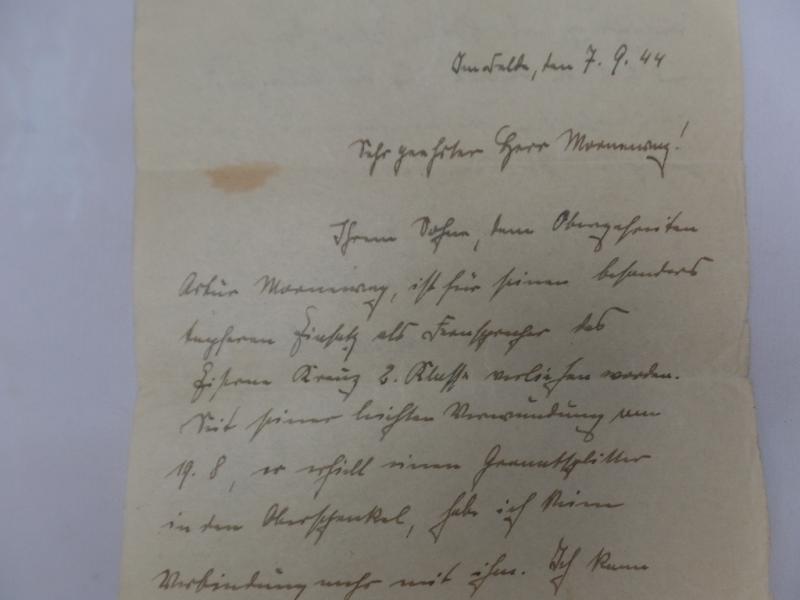 Im Felde, den 7. 9. 44
Sehr geehrter Herr Morneweg!
Ihrem Sohne, dem Obergefreiten
Artur Morneweg, ist für seinen besonders
tapferen Einsatz als Fernsprecher das
Eiserne Kreuz 2. Klasse verliehen worden.
Seit seiner leichten Verwundung am
19. 8, er erhielt einen Granatsplitter
in den Oberschenkel, habe ich keine
Verbindung mehr mit ihm. Ich kann